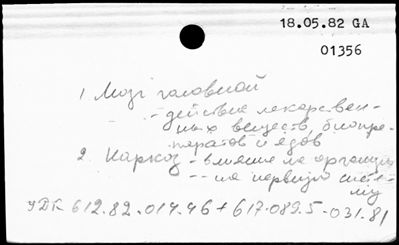 18.05.82 GA
01356
1. Мозг головной
- действие лекарствен-
ных веществ, биопре-
паратов и ядов
2. Наркоз - влияние на организм
-- на нервную систе-
му
УДК 612.82.014.46 + 617-089.5-031.81